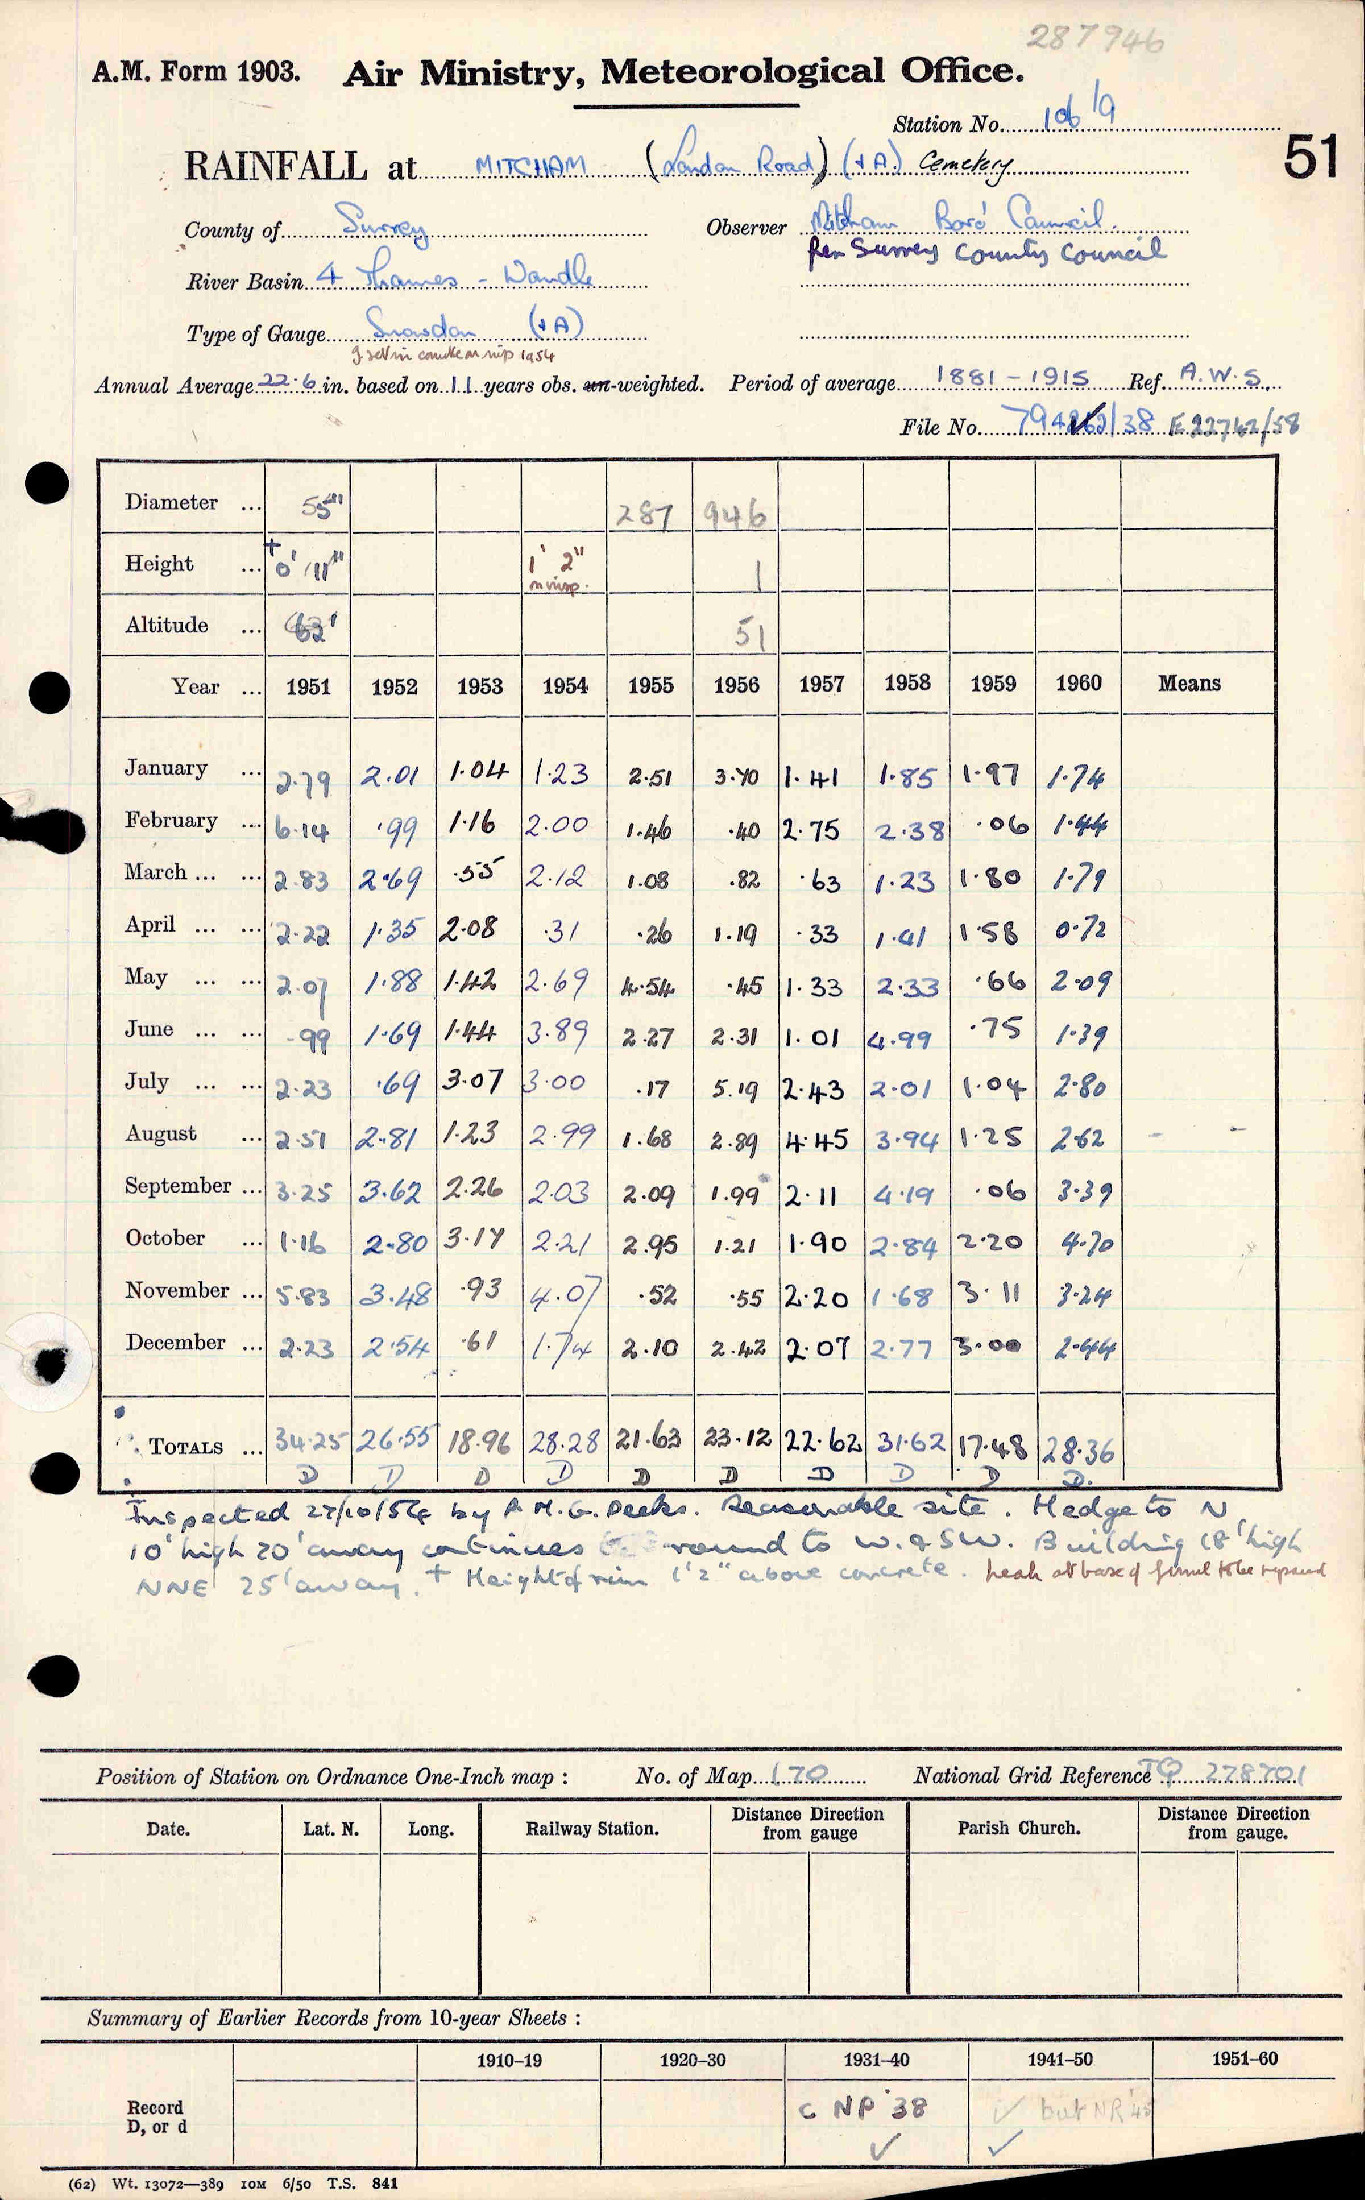 287946
A.M. Form 1903. Air Ministry, Meteorological Office.
Station No. 106/9
51
RAINFALL at MITCHAM (London Road) (+A.) Cemetery
County of Surrey Observer Mitcham Boro' Council.
per Surrey County Council
River Basin 4 Thames - Wandle
Type of Gauge Snowdon (+A)
Annual Average 22.6 in. based on 11 years obs. un-weighted. Period of average 1881-1915 Ref. A.W.S.
File No. 794262/38 E22762/58
Diameter ... 5" 287 946
Height ... + 0' 11" 1' 2" 1
Altitude ... 62' 51
Year ... 1951 1952 1953 1954 1955 1956 1957 1958 1959 1960 Means
January ... 2.79 2.01 1.04 1.23 2.51 3.70 1.41 1.85 1.97 1.74
February ... 6.14 .99 1.16 2.00 1.46 .40 2.75 2.38 .06 1.44
March ... ... 2.83 2.69 .55 2.12 1.08 .82 .63 1.23 1.80 1.79
April ... ... 2.22 1.35 2.08 .31 .26 1.19 .33 1.41 1.58 0.72
May ... ... 2.07 1.88 1.42 2.69 4.54 .45 1.33 2.33 .66 2.09
June ... ... .99 1.69 1.44 3.89 2.27 2.31 1.01 4.99 .75 1.39
July ... ... 2.23 .69 3.07 3.00 .17 5.19 2.43 2.01 1.04 2.80
August ... 2.51 2.81 1.23 2.99 1.68 2.89 4.45 3.94 1.25 2.62 - -
September ... 3.25 3.62 2.26 2.03 2.09 1.99 2.11 4.19 .06 3.39
October ... 1.16 2.80 3.17 2.21 2.95 1.21 1.90 2.84 2.20 4.70
November ... 5.83 3.48 .93 4.07 .52 .55 2.20 1.68 3.11 3.24
December ... 2.23 2.54 .61 1.74 2.10 2.42 2.07 2.77 3.00 2.44
TOTALS ... 34.25 26.55 18.96 28.28 21.63 23.12 22.62 31.62 17.48 28.36
D D D D D D D D D D.
Inspected 27/10/54 by A.M.G. Deeks. Reasonable site. Hedge to N
10' high 20' away continues round to W. & SW. Building 18' high
NNE 25' away. + Height of rim 1'2" above concrete. Leak at base of funnel to be repaired
Position of Station on Ordnance One-Inch map : No. of Map 170 National Grid Reference TQ 278701
Date. Lat. N. Long. Railway Station. Distance Direction from gauge Parish Church. Distance Direction from gauge.
Summary of Earlier Records from 10-year Sheets :
1910-19 1920-30 1931-40 1941-50 1951-60
Record D, or d C NP '38 ✓ ✓ but NR '45 ✓
(62) Wt. 13072—389 10M 6/50 T.S. 841